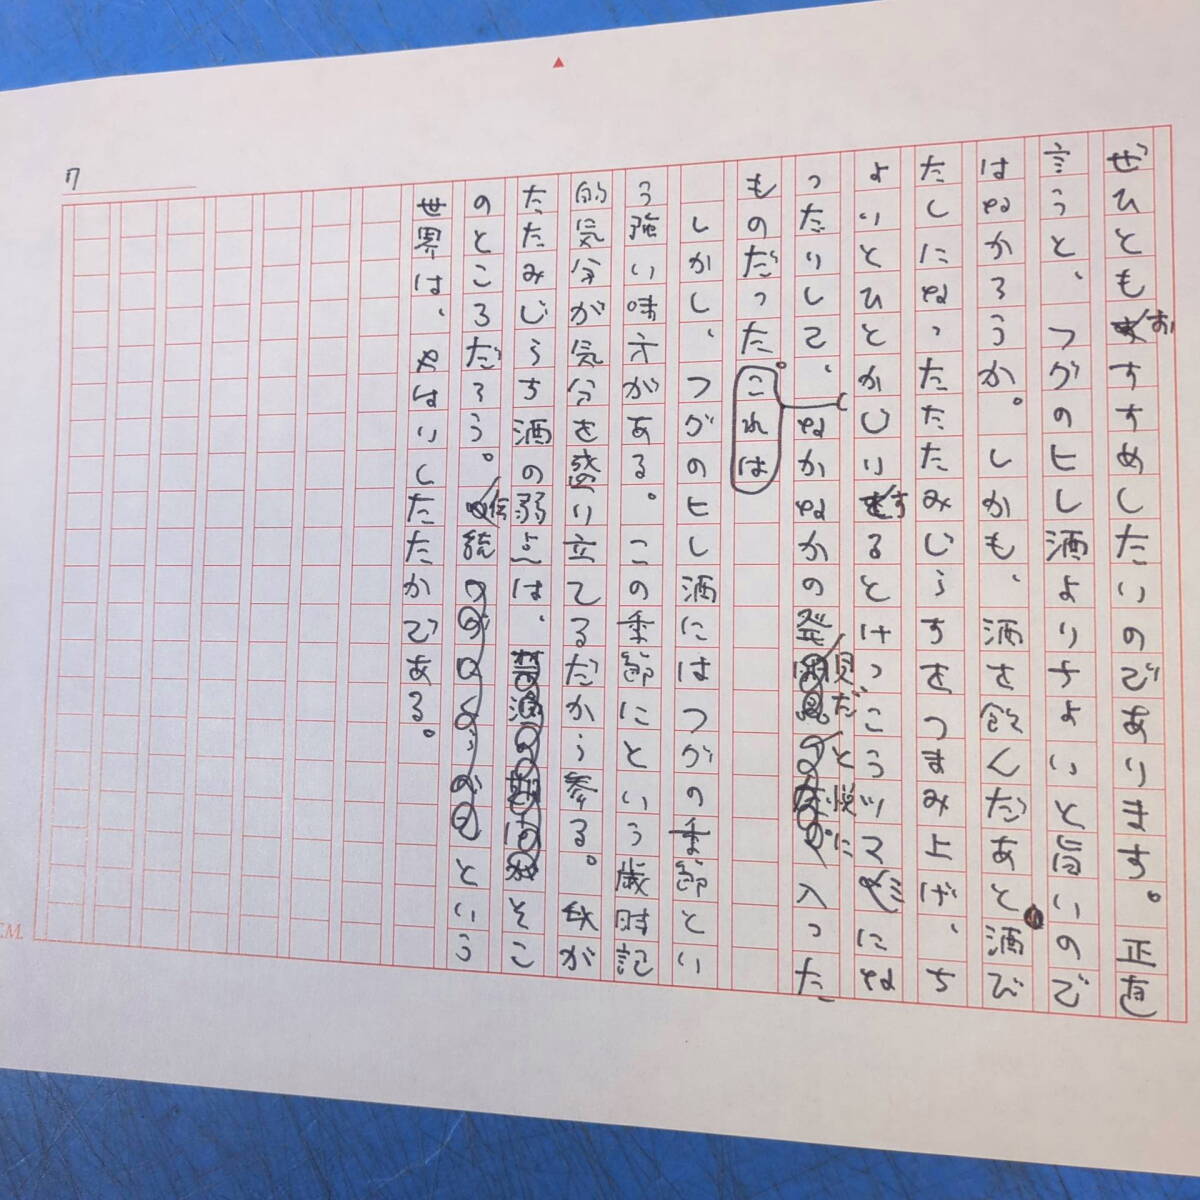 ぜひともおすすめしたいのであります。正直
言うと、フグのヒレ酒よりちょいと旨いので
はなかろうか。しかも、酒を飲んだあと酒び
たしになったたたみじらちをつまみ上げ、ち
ょいとひとかじりするとけっこうツマミにな
ったりして、なかなかの発見だと悦に入った
ものだった。これは
しかし、フグのヒレ酒にはフグの季節とい
う強い味方がある。この季節にという歳時記
的気分が気分を盛り立てるだから参る。が
たたみじらち酒の弱点は、そこ
のところだろう。伝統という
世界は、やはりしたたかである。
7